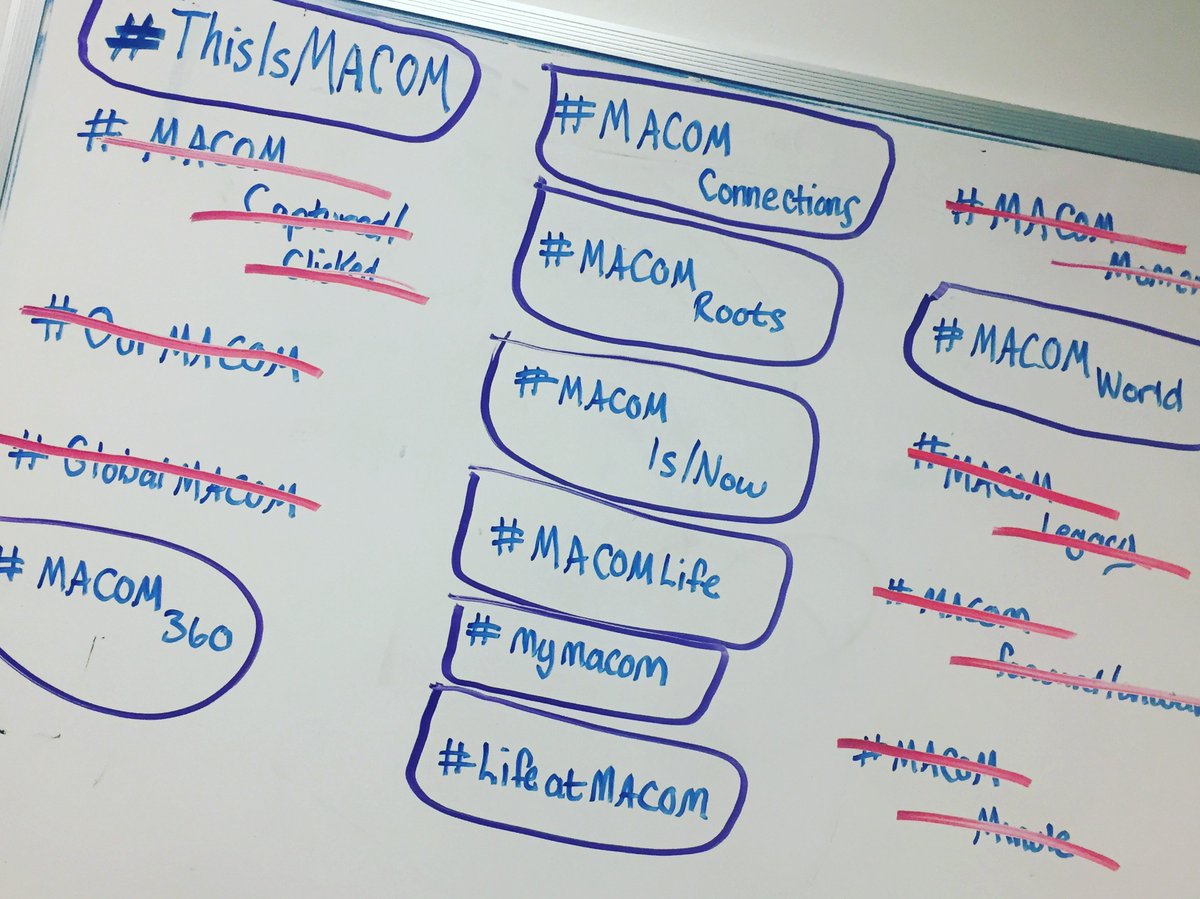 #ThisIsMACOM
# MACOM
Captured/
Clicked
#OurMACOM
# Global MACOM
# MACOM
360
#MACOM
Connections
#MACOM
Roots
#MACOM
Is/Now
#MACOMLife
#mymacom
#LifeatMACOM
#MACOM
#MACOM
World
#MACOM
Legacy
#MACOM
#MACOM
Minute